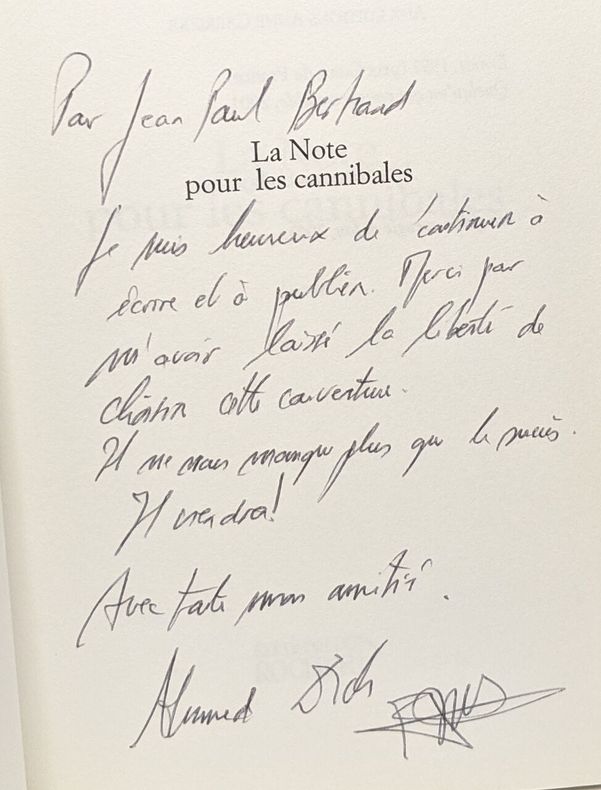 Pour Jean Paul Bertrand
La Note
pour les cannibales
Je suis heureux de continuer à
écrire et à publier. Merci pour
m'avoir laissé la liberté de
choisir cette couverture.
Il ne nous manque plus que le succès.
Il viendra!
Avec toute mon amitié.
Ahmed Dich